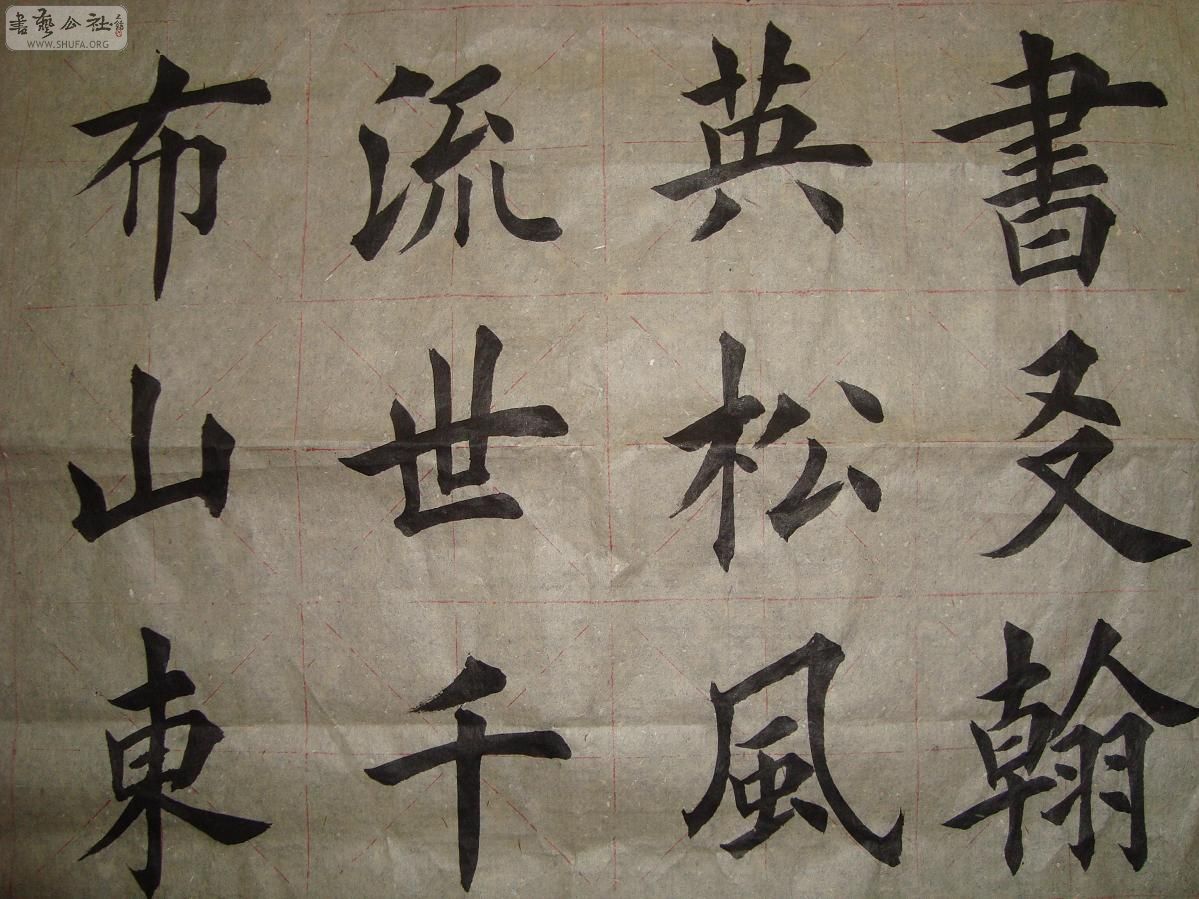 書藝公社
WWW.SHUFA.ORG
書㕛翰
英松風
流世千
布山東